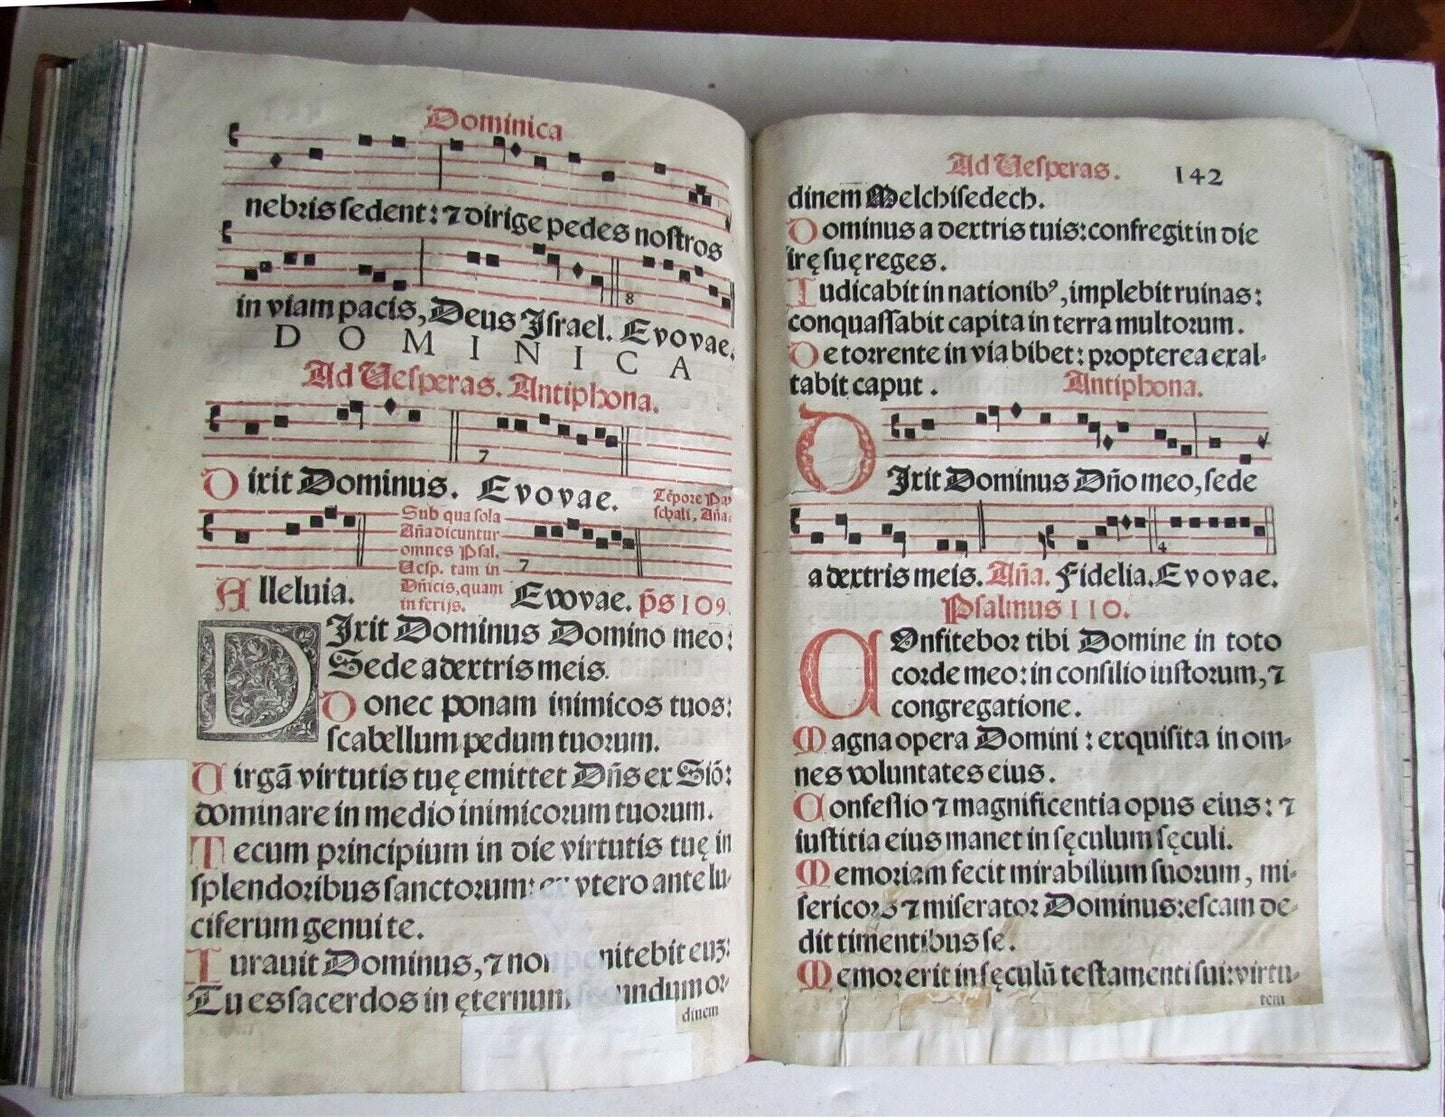 Dominica
nebris sedent: ⁊ dirige pedes nostros
in viam pacis, Deus Israel. Evovae.
8
DOMINICA
Ad Vesperas. Antiphona.
7
Dixit Dominus. Evovae.
Tēpore Pa-
schali, Aña:
Sub qua sola
Aña dicuntur
omnes Psal.
Vesp. tam in
Dñicis, quam
in ferijs.
7
Alleluia. Evovae. p̄s 109.
DIxit Dominus Domino meo:
Sede a dextris meis.
Donec ponam inimicos tuos:
scabellum pedum tuorum.
Virgā virtutis tuę emittet Dñs ex Siō:
dominare in medio inimicorum tuorum.
Tecum principium in die virtutis tuę in
splendoribus sanctorum: ex vtero ante lu-
ciferum genui te.
Iurauit Dominus, ⁊ non penitebit euʒ:
Tu es sacerdos in ęternum undum or-
dinem
Ad Vesperas. 142
dinem Melchisedech.
Dominus a dextris tuis: confregit in die
irę suę reges.
Iudicabit in nationibꝰ, implebit ruinas:
conquassabit capita in terra multorum.
De torrente in via bibet: propterea exal-
tabit caput. Antiphona.
DIxit Dominus Dño meo, sede
4
a dextris meis. Aña. Fidelia. Evovae.
Psalmus 110.
COnfitebor tibi Domine in toto
corde meo: in consilio iustorum, ⁊
congregatione.
Magna opera Domini: exquisita in om-
nes voluntates eius.
Confessio ⁊ magnificentia opus eius: ⁊
iustitia eius manet in sęculum sęculi.
Memoriam fecit mirabilium suorum, mi-
sericors ⁊ miserator Dominus: escam de-
dit timentibus se.
Memor erit in sęculū testamenti sui: virtu-
tem